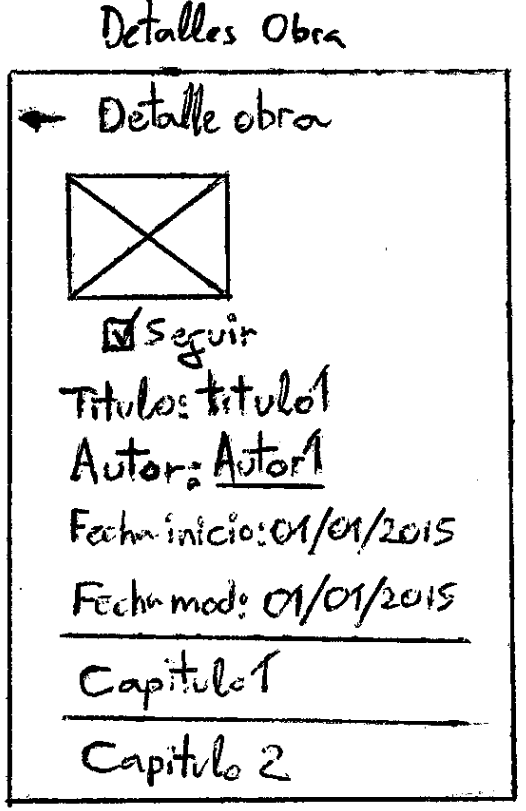 Detalles Obra
Detalle obra
Seguir
Titulo: titulo1
Autor: Autor1
Fecha inicio: 01/01/2015
Fecha mod: 01/01/2015
Capitulo 1
Capitulo 2